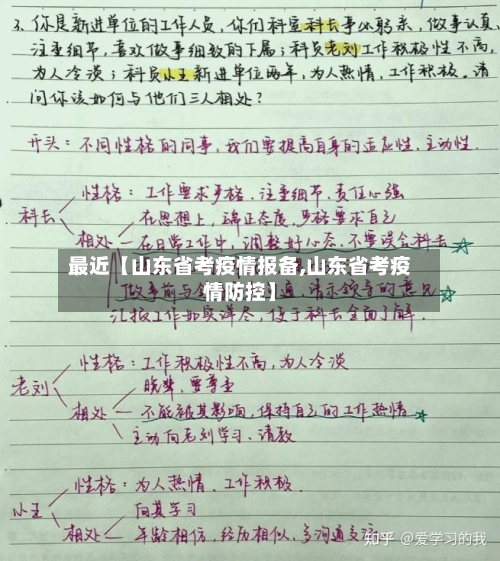 3. 你是新进单位的工作人员,你们科室科长事必躬亲,做事认真,
注重细节,喜欢做事细致的下属;科员老刘工作积极性不高,
为人冷淡;科员小王新进单位两年,为人热情,工作积极。请
问你该如何与他们三人相处?
开头:不同性格的同事,我们要提高自身的适应性,主动性.
性格:工作要求严格、注重细节、责任心强
科长
在思想上,端正态度,严格要求自己
相处
在日常工作中,调整好心态,不要误会科长
最近【山东省考疫情报备,山东省考疫
情防控】
做事前与 通,请示领导的意见
汇报工作如实详尽,便于科长全面了解.
性格:工作积极性不高,为人冷淡
老刘
晚辈,要尊重
相处
不能被其影响,保持自己的工作热情
主动向老刘学习、请教
性格:为人热情、工作积极.
小王
向其学习
相处
年龄相仿,经历相似,多沟通交流
知乎 @爱学习的我